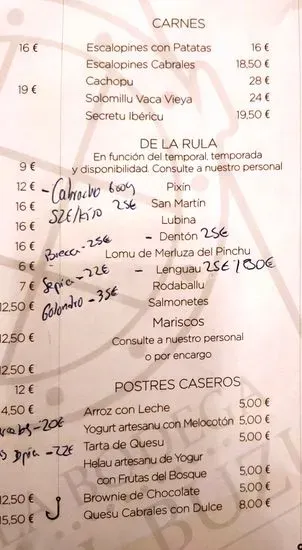 CARNES
16 € Escalopines con Patatas 16 €
Escalopines Cabrales 18,50 €
19 € Cachopu 28 €
Solomillu Vaca Vieya 24 €
Secretu Ibéricu 19,50 €
DE LA RULA
En función del temporal, temporada
9 € y disponibilidad. Consulte a nuestro personal
12 € - Cabracho 600g Pixín
16 € 52€/kilo 25€ San Martín
16 € Lubina
16 € Brecca - 25€ - Dentón 25€
6 € Lomu de Merluza del Pinchu
7 € Sepia - 22€ - Lenguau 25€/
12,50 € Golondro - 35€ Rodaballu
Salmonetes
12,50 € Mariscos
Consulte a nuestro personal
12,50 € o por encargo
12 € POSTRES CASEROS
4,50 € Arroz con Leche 5,00 €
- 20€ Yogurt artesanu con Melocotón 5,00 €
- 22€ Tarta de Quesu 5,00 €
Helau artesanu de Yogur
con Frutas del Bosque 5,00 €
12,50 € Brownie de Chocolate 5,00 €
15,50 € Quesu Cabrales con Dulce 8,00 €